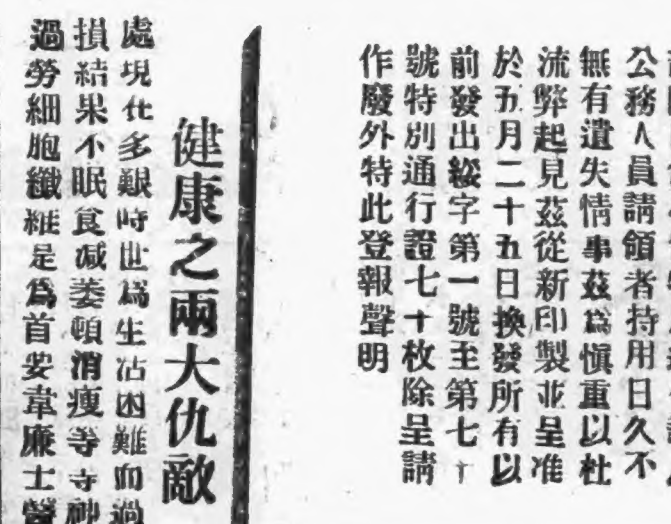 公務人員請領者持用日久不
無有遺失情事茲爲愼重以杜
流弊起見茲從新印製並呈准
於五月二十五日換發所有以
前發出綏字第一號至第七十
號特別通行證七十枚除呈請
作廢外特此登報聲明
健康之兩大仇敵
處現代多艱時世爲生活困難而過
損結果不眠食减萎頓消瘦等
過勞細胞纖維是爲首要韋廉士